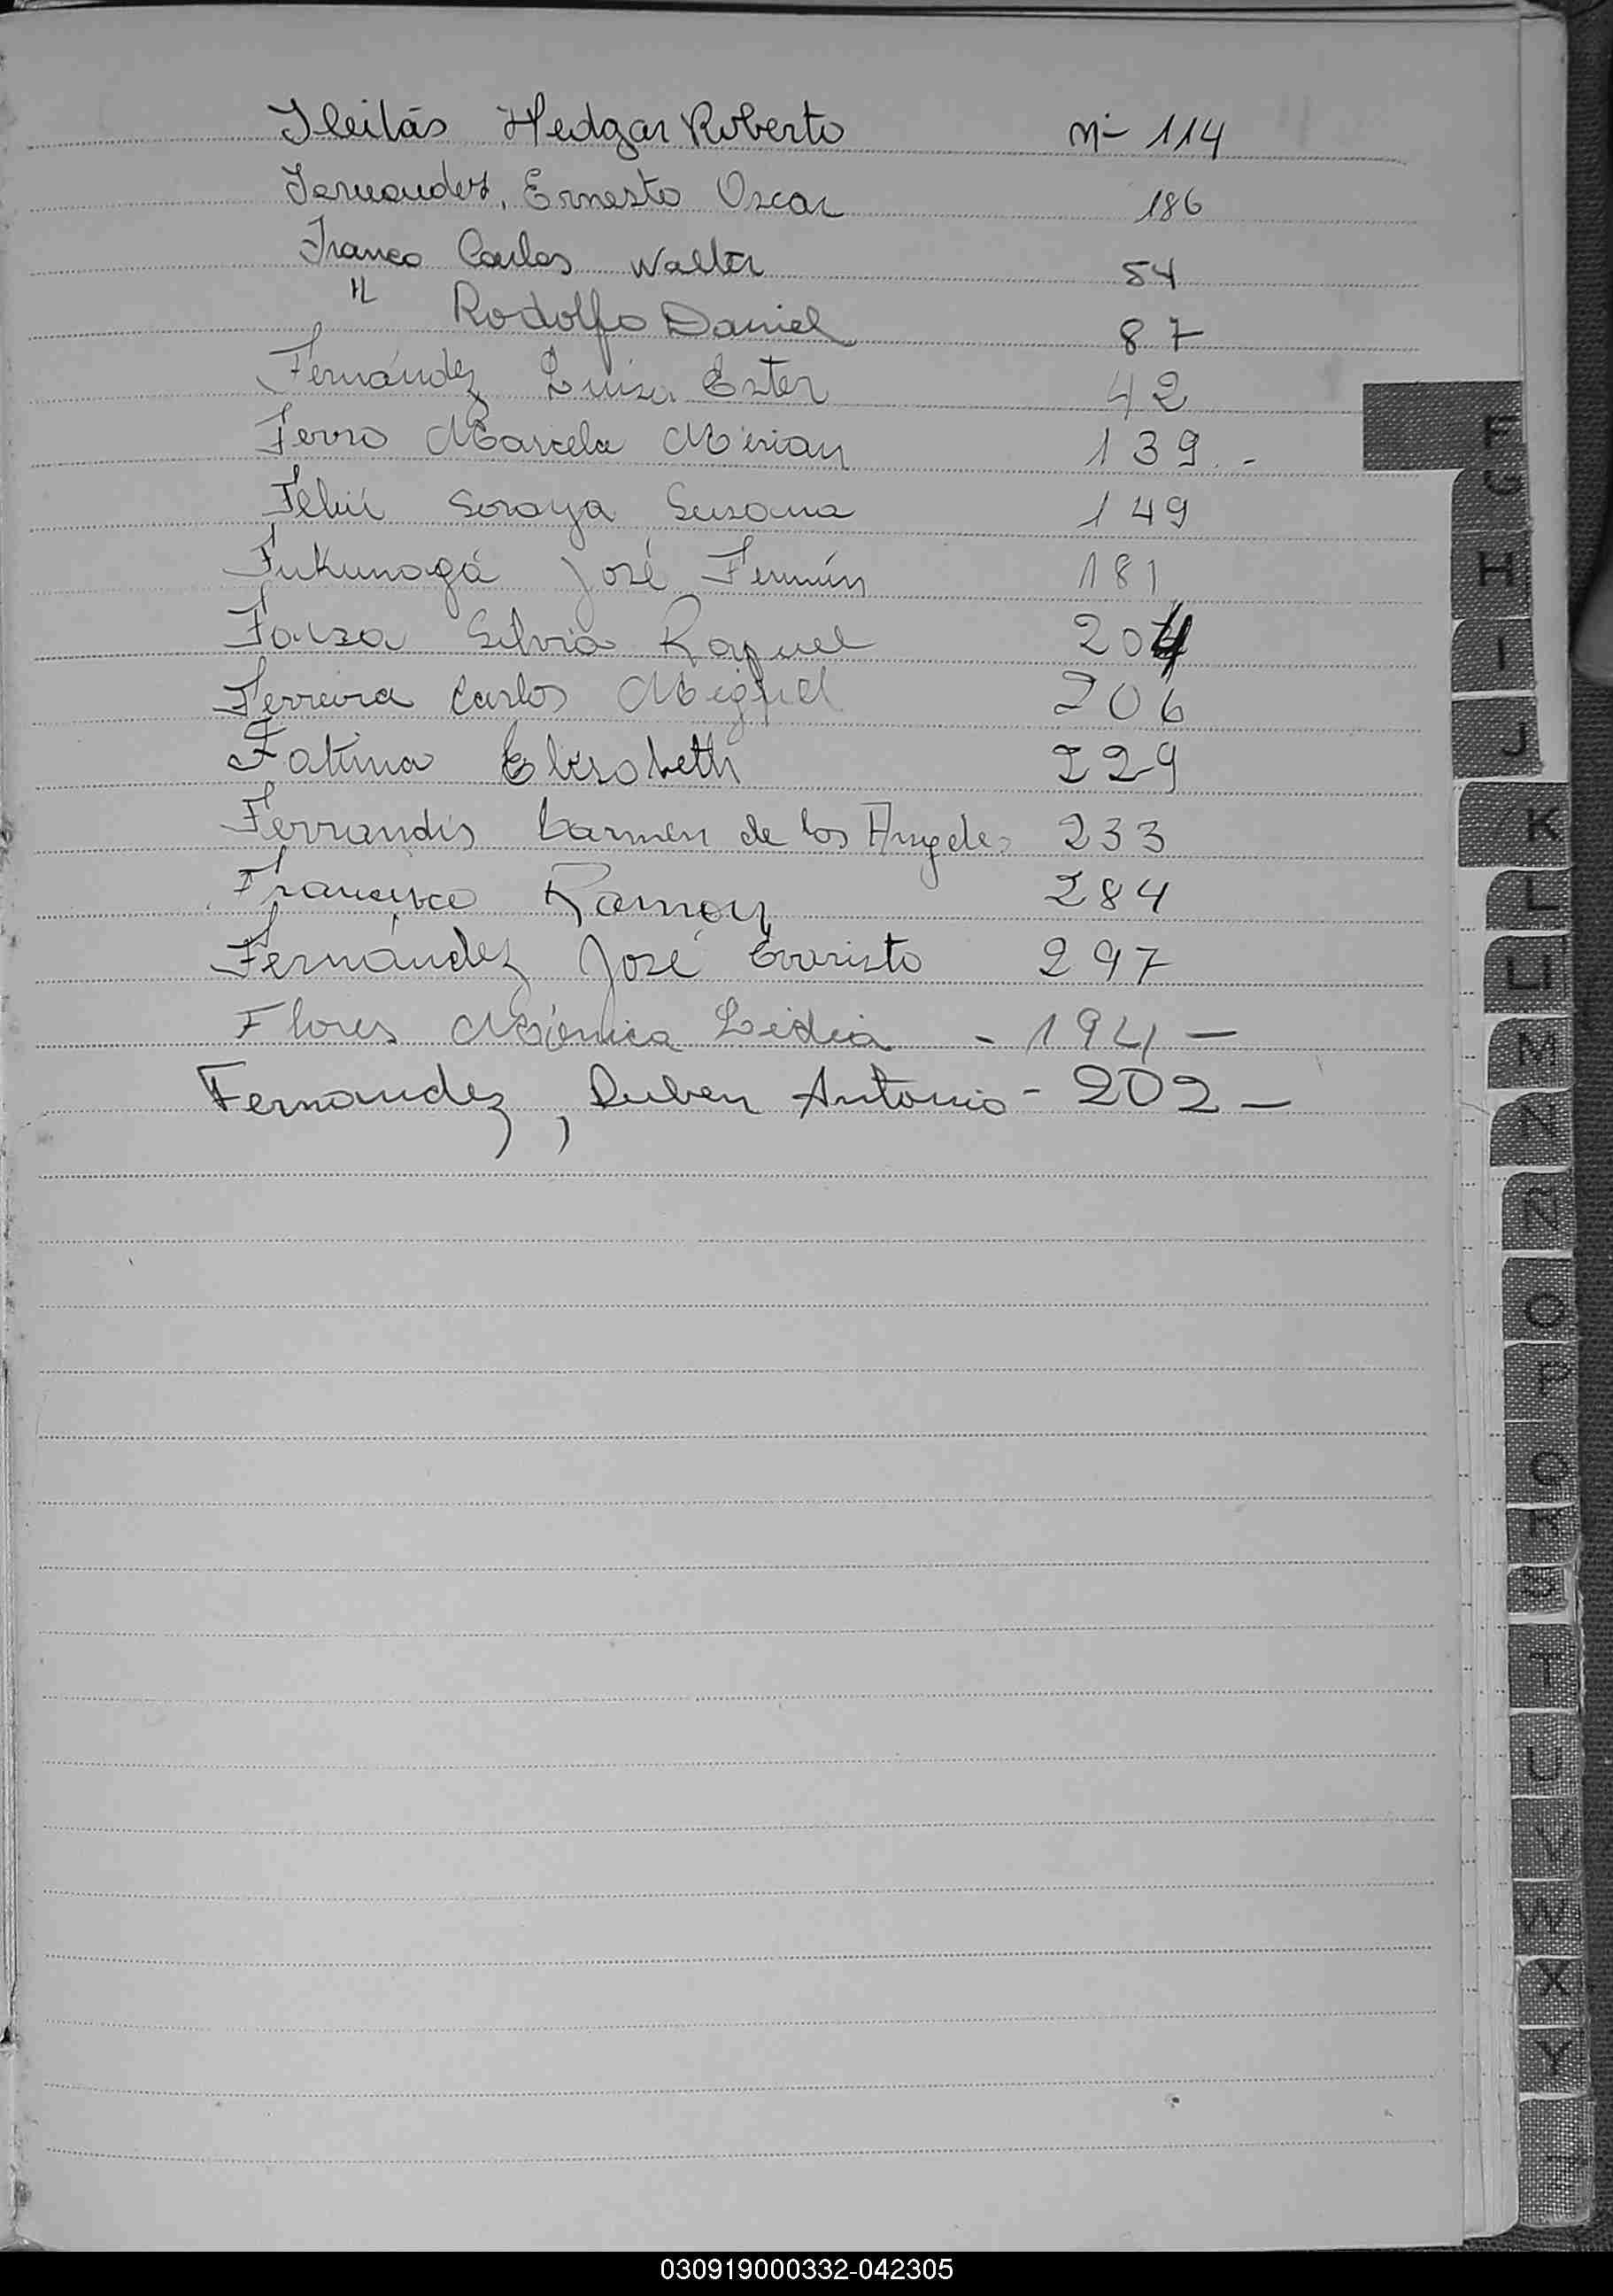 Fleitas Hedgar Roberto Nº 114
Fernandez, Ernesto Oscar 186
Franco Carlos Walter 54
" Rodolfo Daniel 87
Fernández Luisa Ester 42
Ferro Marcela Mirian 139.-
Soraya Susana 149
Fukunagá José Fermín 181
Silvia Raquel 204
Ferreira Carlos Miguel 206
Fatima Elisabeth 229
Ferrandis Carmen de los Angeles 233
Francisco Ramon 284
Fernández José Evaristo 297
Flores Mónica Lidia - 194 -
Fernandez, Ruben Antonio - 202 -
F
G
H
I
J
K
L
Ll
M
N
Ñ
O
P
Q
R
S
T
U
V
W
X
Y
030919000332-042305